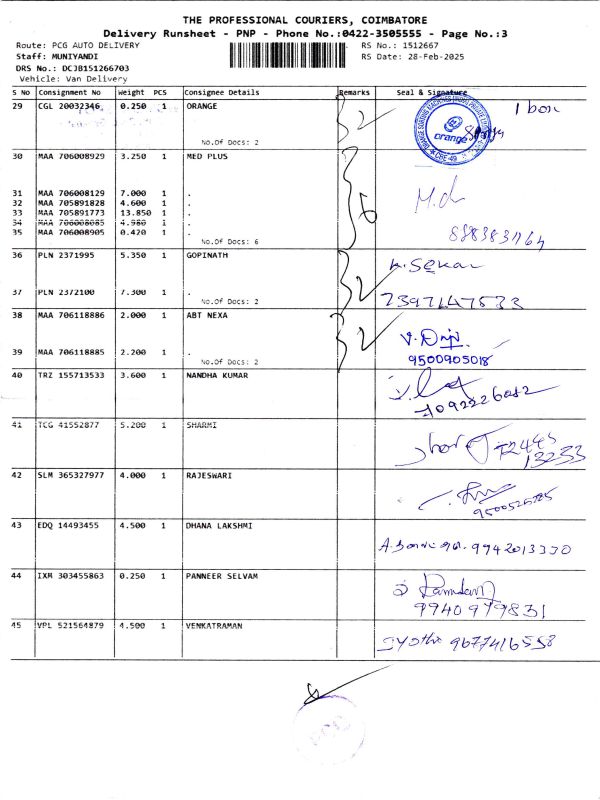 THE PROFESSIONAL COURIERS, COIMBATORE
Delivery Runsheet - PNP - Phone No.:0422-3505555 - Page No.:3
Route: PCG AUTO DELIVERY RS No.: 1512667
Staff: MUNIYANDI RS Date: 28-Feb-2025
DRS No.: DCJB151266703
Vehicle: Van Delivery
S No Consignment No Weight PCS Consignee Details Remarks Seal & Signature
29 CGL 20032346 0.250 1 ORANGE 1 box
orange
No.Of Docs: 2
30 MAA 706008929 3.250 1 MED PLUS
31 MAA 706008129 7.000 1 .
32 MAA 705891828 4.600 1 .
33 MAA 705891773 13.850 1 .
34 MAA 706008085 4.980 1 .
35 MAA 706008905 0.420 1 .
No.Of Docs: 6
36 PLN 2371995 5.350 1 GOPINATH K. Sekar
37 PLN 2372100 7.300 1 .
No.Of Docs: 2 7397447533
38 MAA 706118886 2.000 1 ABT NEXA
39 MAA 706118885 2.200 1 .
No.Of Docs: 2 9500905018
40 TRZ 155713533 3.600 1 NANDHA KUMAR
41 TCG 41552877 5.200 1 SHARMI
42 SLM 365327977 4.000 1 RAJESWARI
43 EDQ 14493455 4.500 1 DHANA LAKSHMI 9942013330
44 IXM 303455863 0.250 1 PANNEER SELVAM
9940979831
45 VPL 521564879 4.500 1 VENKATRAMAN Jyothi 9677416558